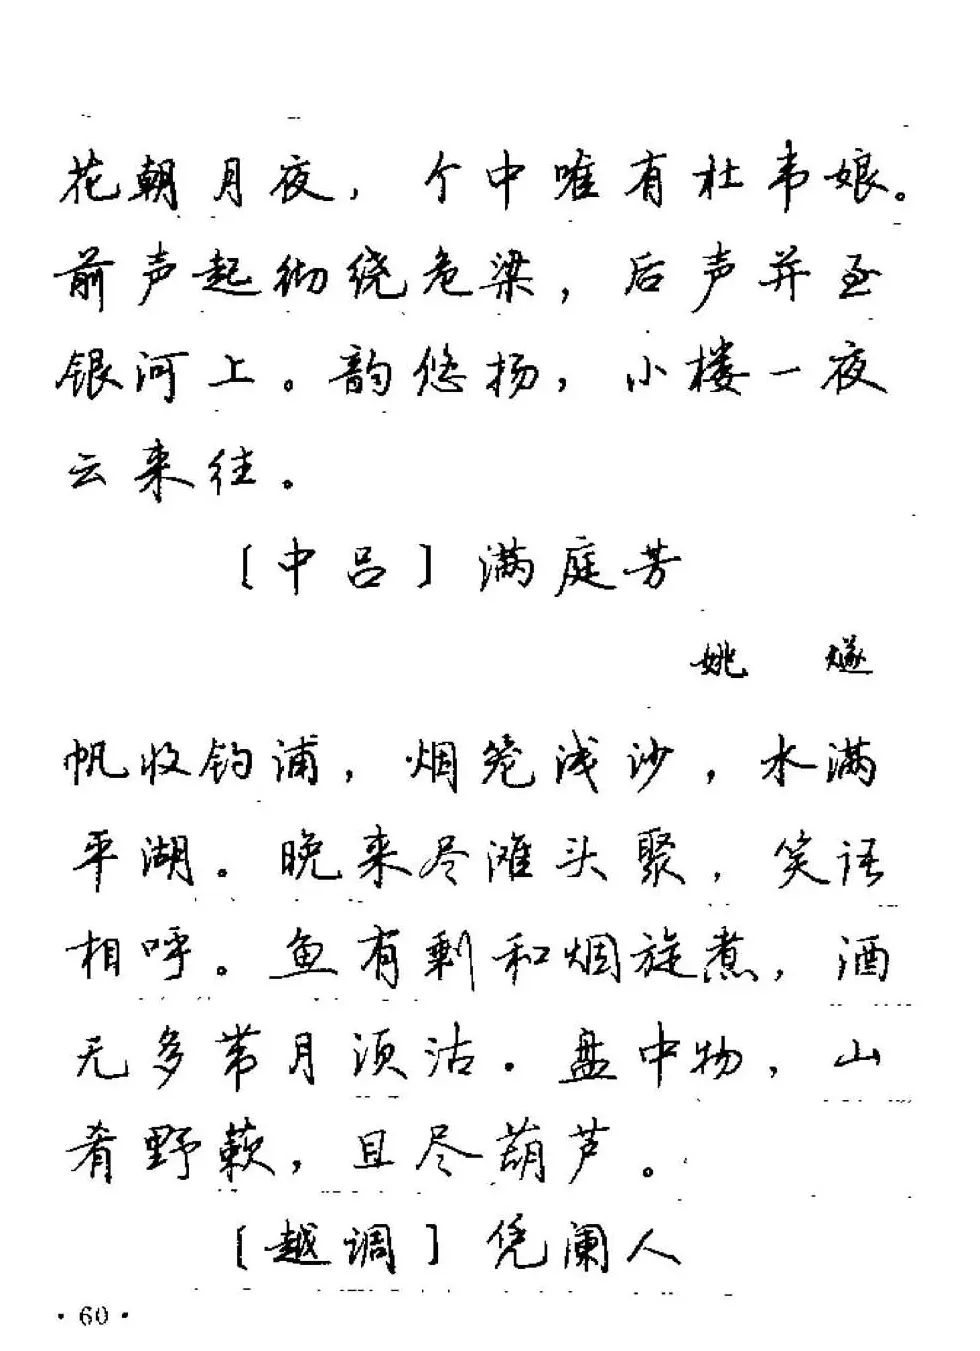 花朝月夜，个中唯有杜韦娘。
前声起彻绕危梁，后声并至
银河上。韵悠扬，小楼一夜
云来往。
［中吕］满庭芳
姚 燧
帆收钓浦，烟笼浅沙，水满
平湖。晚来尽滩头聚，笑语
相呼。鱼有剩和烟旋煮，酒
无多带月须沽。盘中物，山
肴野蔌，且尽葫芦。
［越调］凭阑人
·60·